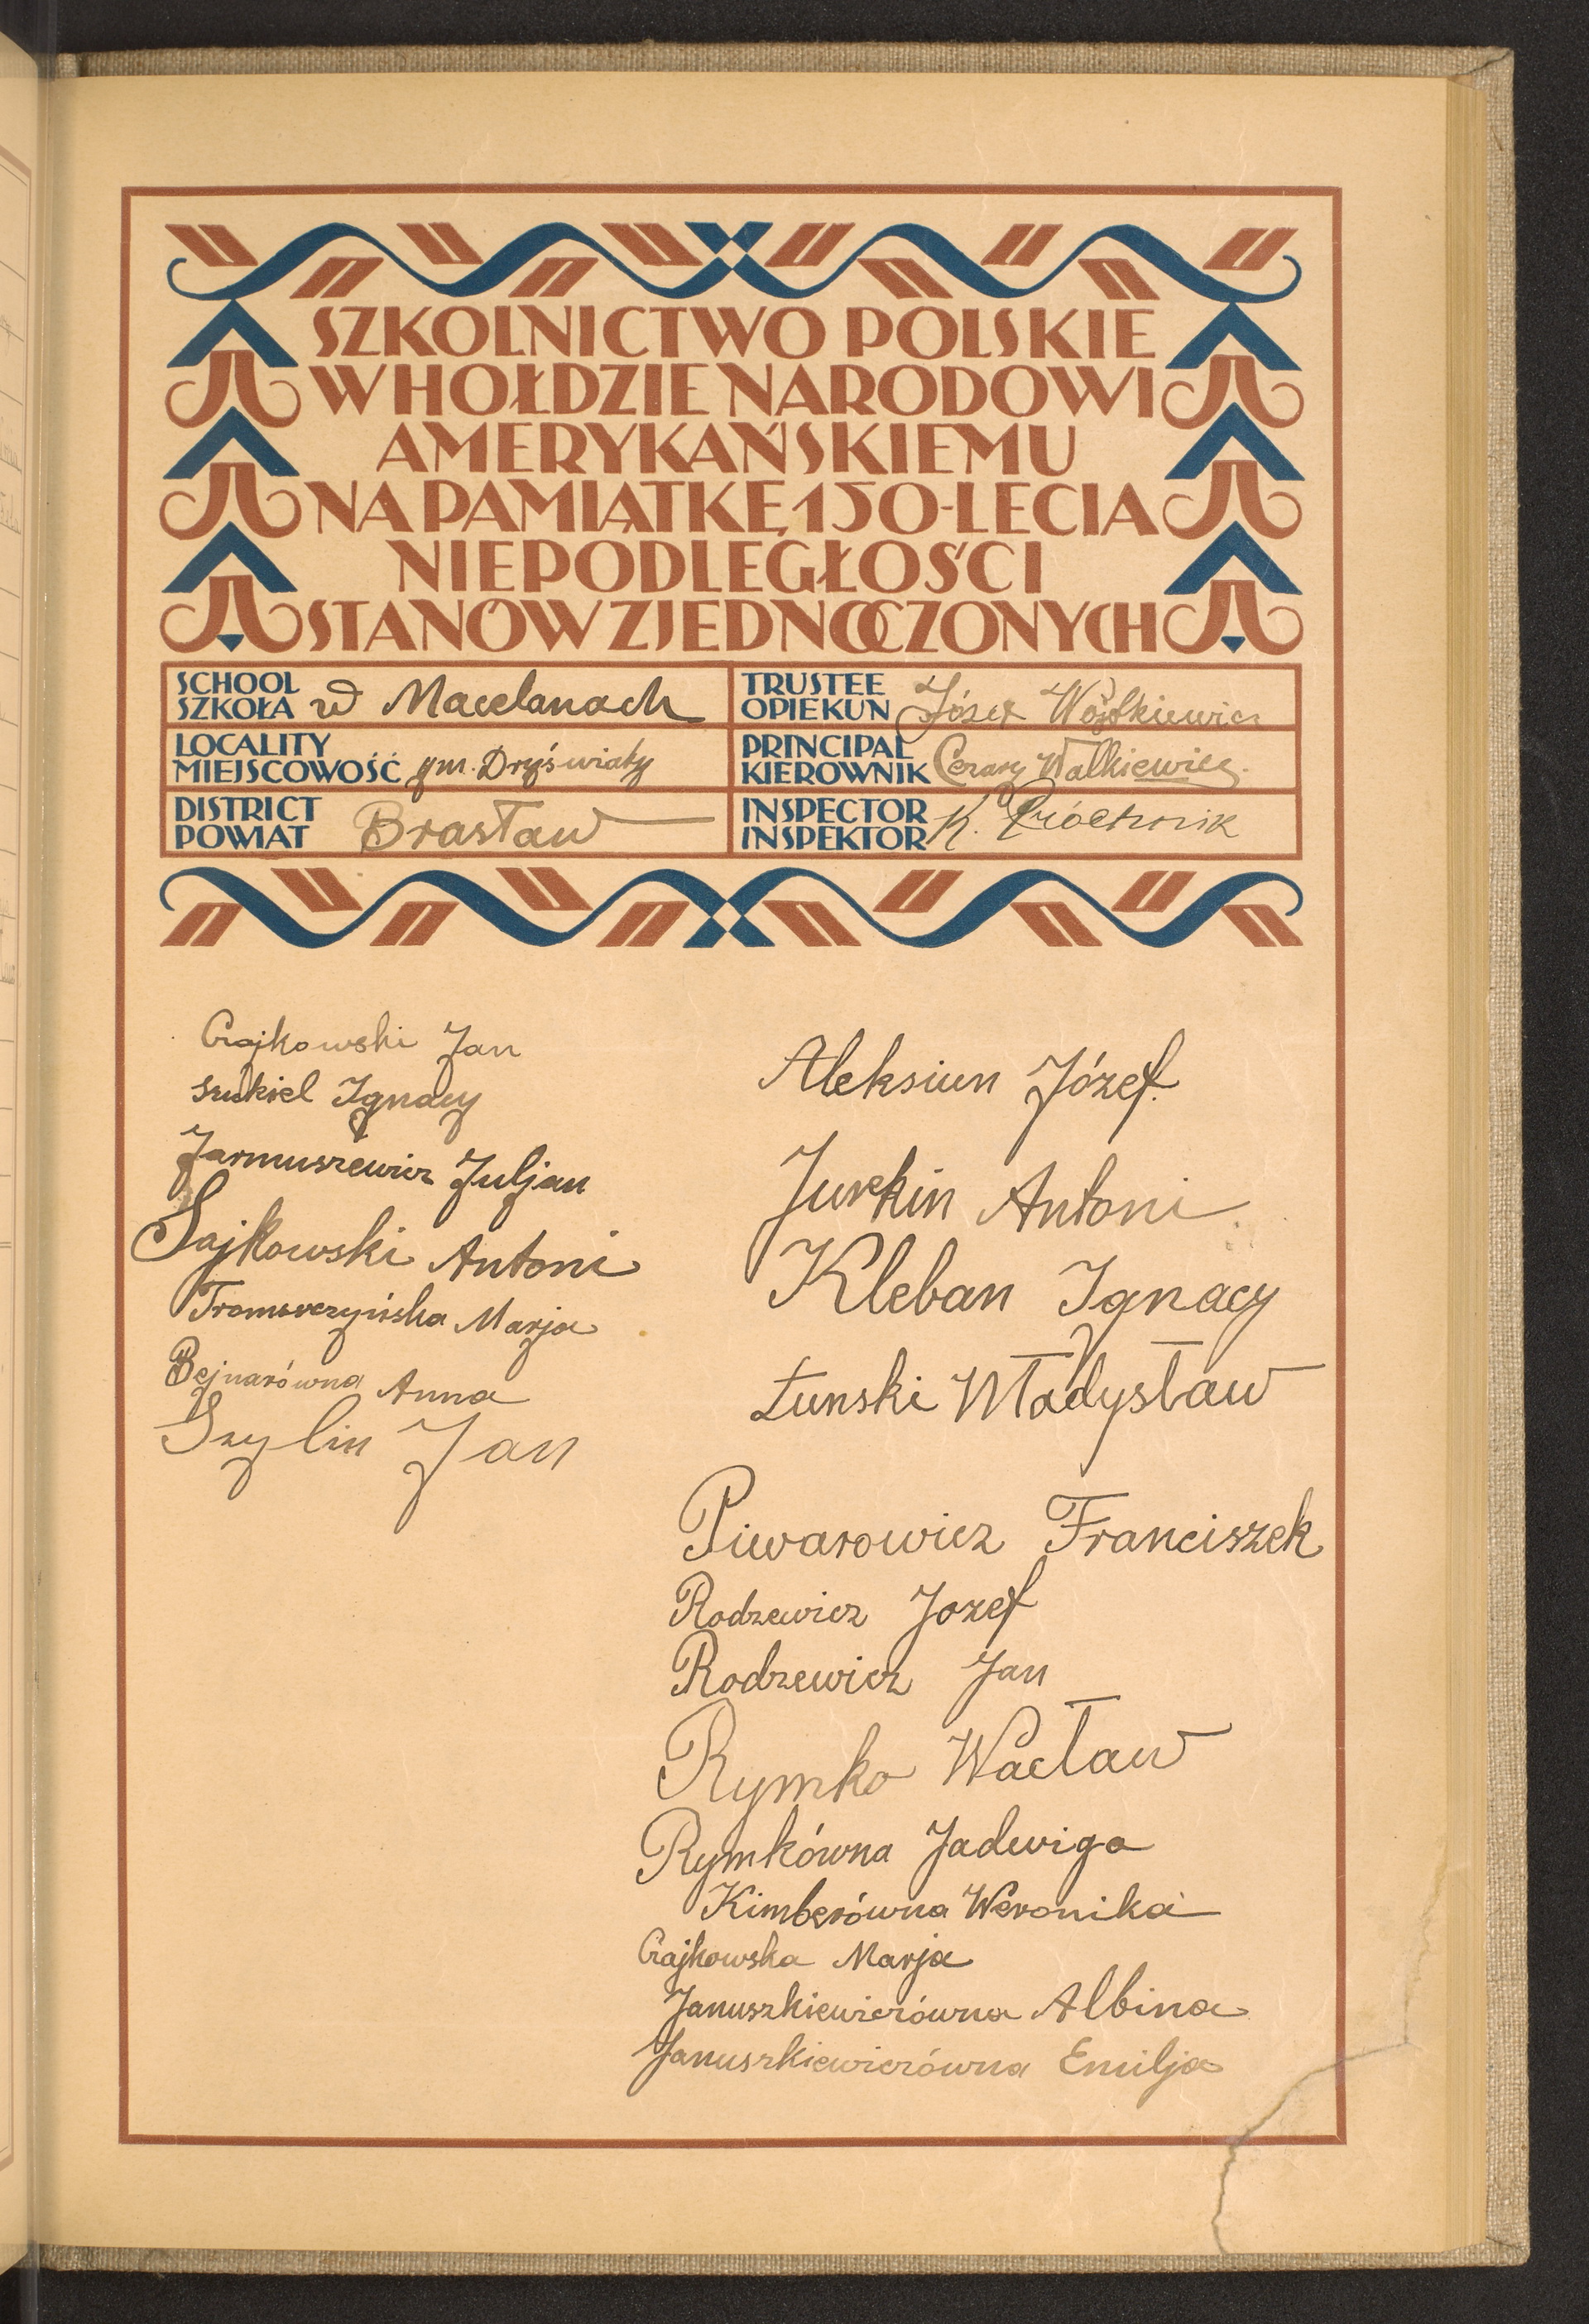 SZKOLNICTWO POLSKIE
W HOŁDZIE NARODOWI
AMERYKAŃSKIEMU
NA PAMIĄTKĘ 150-LECIA
NIEPODLEGŁOŚCI
STANÓW ZJEDNOCZONYCH
SCHOOL
SZKOŁA w Macelanach
TRUSTEE
OPIEKUN Józef
LOCALITY
MIEJSCOWOŚĆ gm. Dryświaty
PRINCIPAL
KIEROWNIK Cezary Walkiewicz.
DISTRICT
POWIAT Brasław
INSPECTOR
INSPEKTOR K. Próchnik
Czajkowski Jan
Szukiel Ignacy
Jarmuszewicz Juljan
Sajkowski Antoni
Marja
Bejnarówna Anna
Szylin Jan
Aleksiun Józef.
Jurkin Antoni
Kleban Ignacy
Łunski Władysław
Piwarowicz Franciszek
Rodzewicz Jozef
Rodzewicz Jan
Rymko Wacław
Rymkówna Jadwiga
Kimberówna Weronika
Czajkowska Marja
Januszkiewiczówna Albina
Januszkiewiczówna Emilja